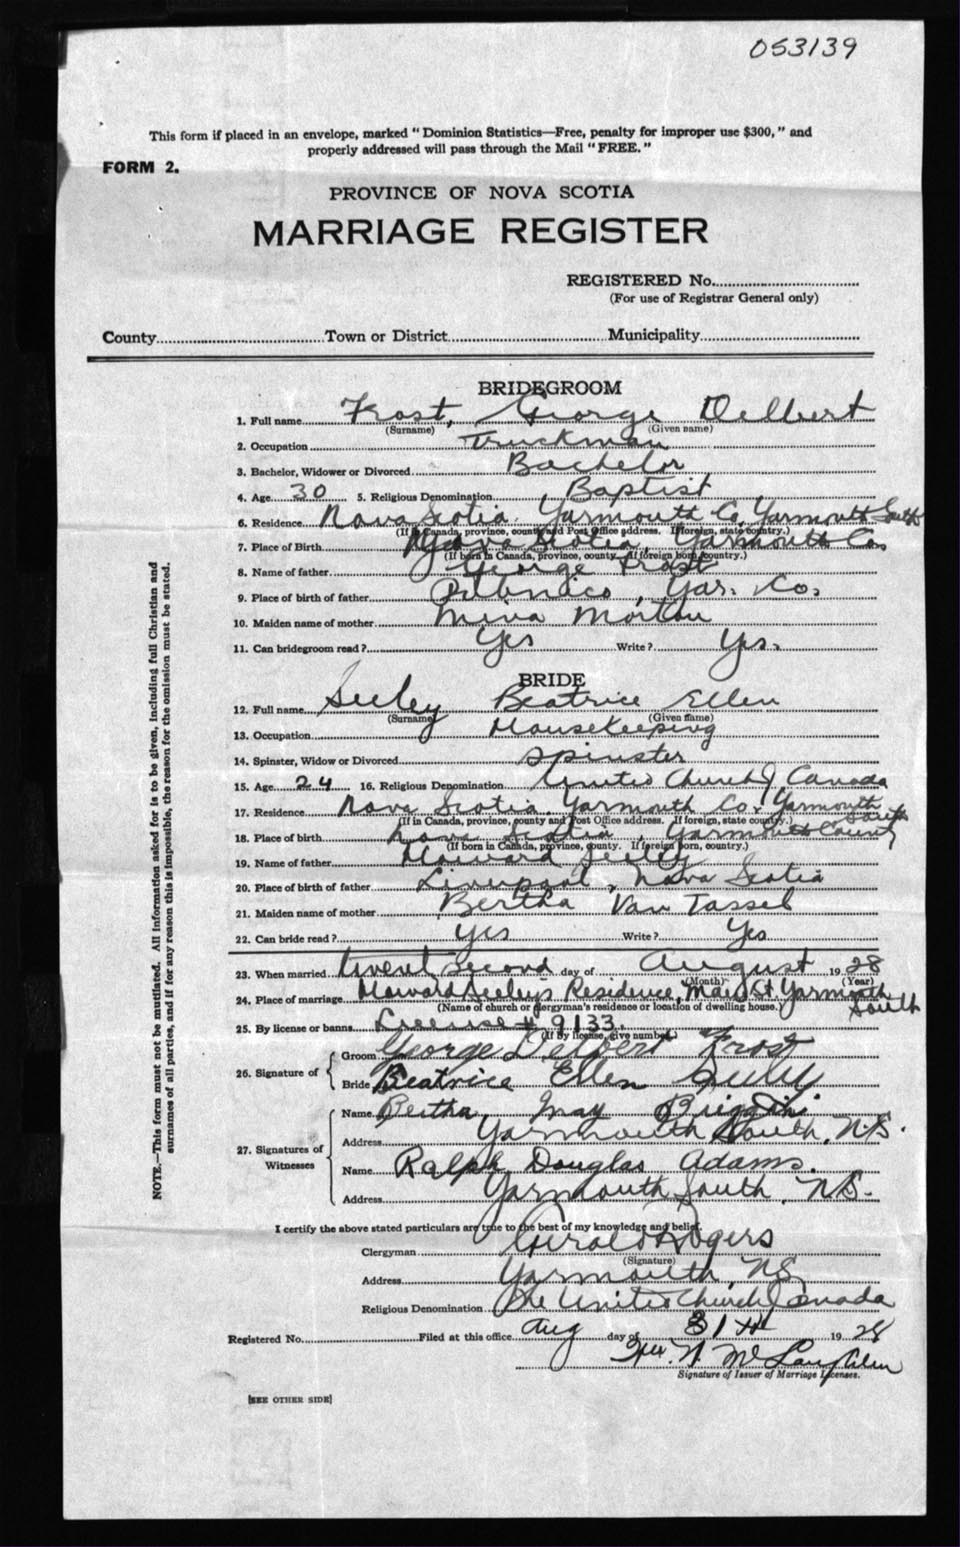 053139
This form if placed in an envelope, marked "Dominion Statistics—Free, penalty for improper use $300," and
properly addressed will pass through the Mail "FREE."
FORM 2.
PROVINCE OF NOVA SCOTIA
MARRIAGE REGISTER
REGISTERED No.
(For use of Registrar General only)
County Town or District Municipality
BRIDEGROOM
1. Full name Frost, George Delbert
(Surname) (Given name)
2. Occupation Truckman
3. Bachelor, Widower or Divorced Bachelor
4. Age 30 5. Religious Denomination Baptist
6. Residence Nova Scotia, Yarmouth Co, Yarmouth South
(If in Canada, province, county and Post Office address. If foreign, state country.)
7. Place of Birth Nova Scotia, Yarmouth Co,
(If born in Canada, province, county. If foreign born, country.)
8. Name of father George Frost
9. Place of birth of father Pubnico, Yar. Co.
10. Maiden name of mother Mina Morton
11. Can bridegroom read? Yes Write? Yes.
BRIDE
12. Full name Seeley Beatrice Ellen
(Surname) (Given name)
13. Occupation Housekeeping
14. Spinster, Widow or Divorced Spinster
15. Age 24 16. Religious Denomination United Church of Canada
17. Residence Nova Scotia, Yarmouth Co. Yarmouth South
(If in Canada, province, county and Post Office address. If foreign, state country.)
18. Place of birth Nova Scotia, Yarmouth County
(If born in Canada, province, county. If foreign born, country.)
19. Name of father Howard Seeley
20. Place of birth of father Liverpool, Nova Scotia
21. Maiden name of mother Bertha Van Tassel
22. Can bride read? Yes Write? Yes
23. When married Twenty Second day of August 1928
(Month) (Year)
24. Place of marriage Howard Seeley's Residence, Main St Yarmouth South
(Name of church or clergyman's residence or location of dwelling house.)
25. By license or banns License # 9133.
(If by license, give number)
26. Signature of Groom George Delbert Frost
Bride Beatrice Ellen Seeley
27. Signatures of Witnesses
Name Bertha May
Address Yarmouth South, N.S.
Name Ralph Douglas Adams.
Address Yarmouth South, N.S.
I certify the above stated particulars are true to the best of my knowledge and belief.
Clergyman Gerald Rogers
(Signature)
Address Yarmouth, N.S.
Religious Denomination The United Church of Canada
Registered No. Filed at this office Aug day of 31st 1928
N. McLaughlin
Signature of Issuer of Marriage Licenses.
[SEE OTHER SIDE]
NOTE.—This form must not be mutilated. All information asked for is to be given, including full Christian and
surnames of all parties, and if for any reason this is impossible, the reason for the omission must be stated.